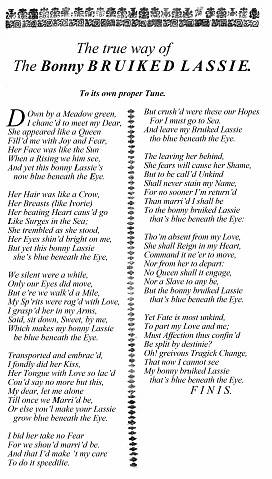 The true way of
The Bonny BRUIKED LASSIE.
To its own proper Tune.
DOwn by a Meadow green,
I chanc'd to meet my Dear,
She appeared like a Queen
Fill'd me with Joy and Fear,
Her Face was like the Sun
When a Rising we him see,
And yet this bonny Lassie's
now blue beneath the Eye.
Her Hair was like a Crow,
Her Breasts (like Ivorie)
Her beating Heart caus'd go
Like Surges in the Sea;
She trembled as she stood,
Her Eyes shin'd bright on me,
But yet this bonny Lassie
she's blue beneath the Eye,
We silent were a while,
Only our Eyes did move,
But e're we walk'd a Mile,
My Sp'rits were rog'd with Love,
I grasp'd her in my Arms,
Said, sit down, Sweet, by me,
Which makes my bonny Lassie
be blue beneath the Eye.
Transported and embrac'd,
I fondly did her Kiss,
Her Tongue with Love so lac'd
Cou'd say no more but this,
My dear, let me alone
Till once we Marri'd be,
Or else you'l make your Lassie
grow blue beneath the Eye.
I bid her take no Fear
For we shou'd marri'd be.
And that I'd make 't my care
To do it speedlie.
But crush'd were these our Hopes
For I must go to Sea.
And leave my Bruiked Lassie
tho blue beneath the Eye.
The leaving her behind,
She fears will cause her Shame,
But to be call'd Unkind
Shall never stain my Name,
For no sooner I'm return'd
Than marri'd I shall be
To the bonny Bruiked Lassie
that's blue beneath the Eye:
Tho'n absent from my Love,
She shall Reign in my Heart,
Command it ne'er to move,
Nor from her to depart:
No Queen shall it engage,
Nor a Slave to any be,
But the bonny Bruiked Lassie
that's blue beneath the Eye.
Yet Fate is most unkind,
To part my Love and me;
Must Affection thus confin'd
Be split by destinie?
Oh! greivons Tragick Change,
That now I cannot see
My bonny bruiked Lassie
that's blue beneath the Eye.
FINIS.